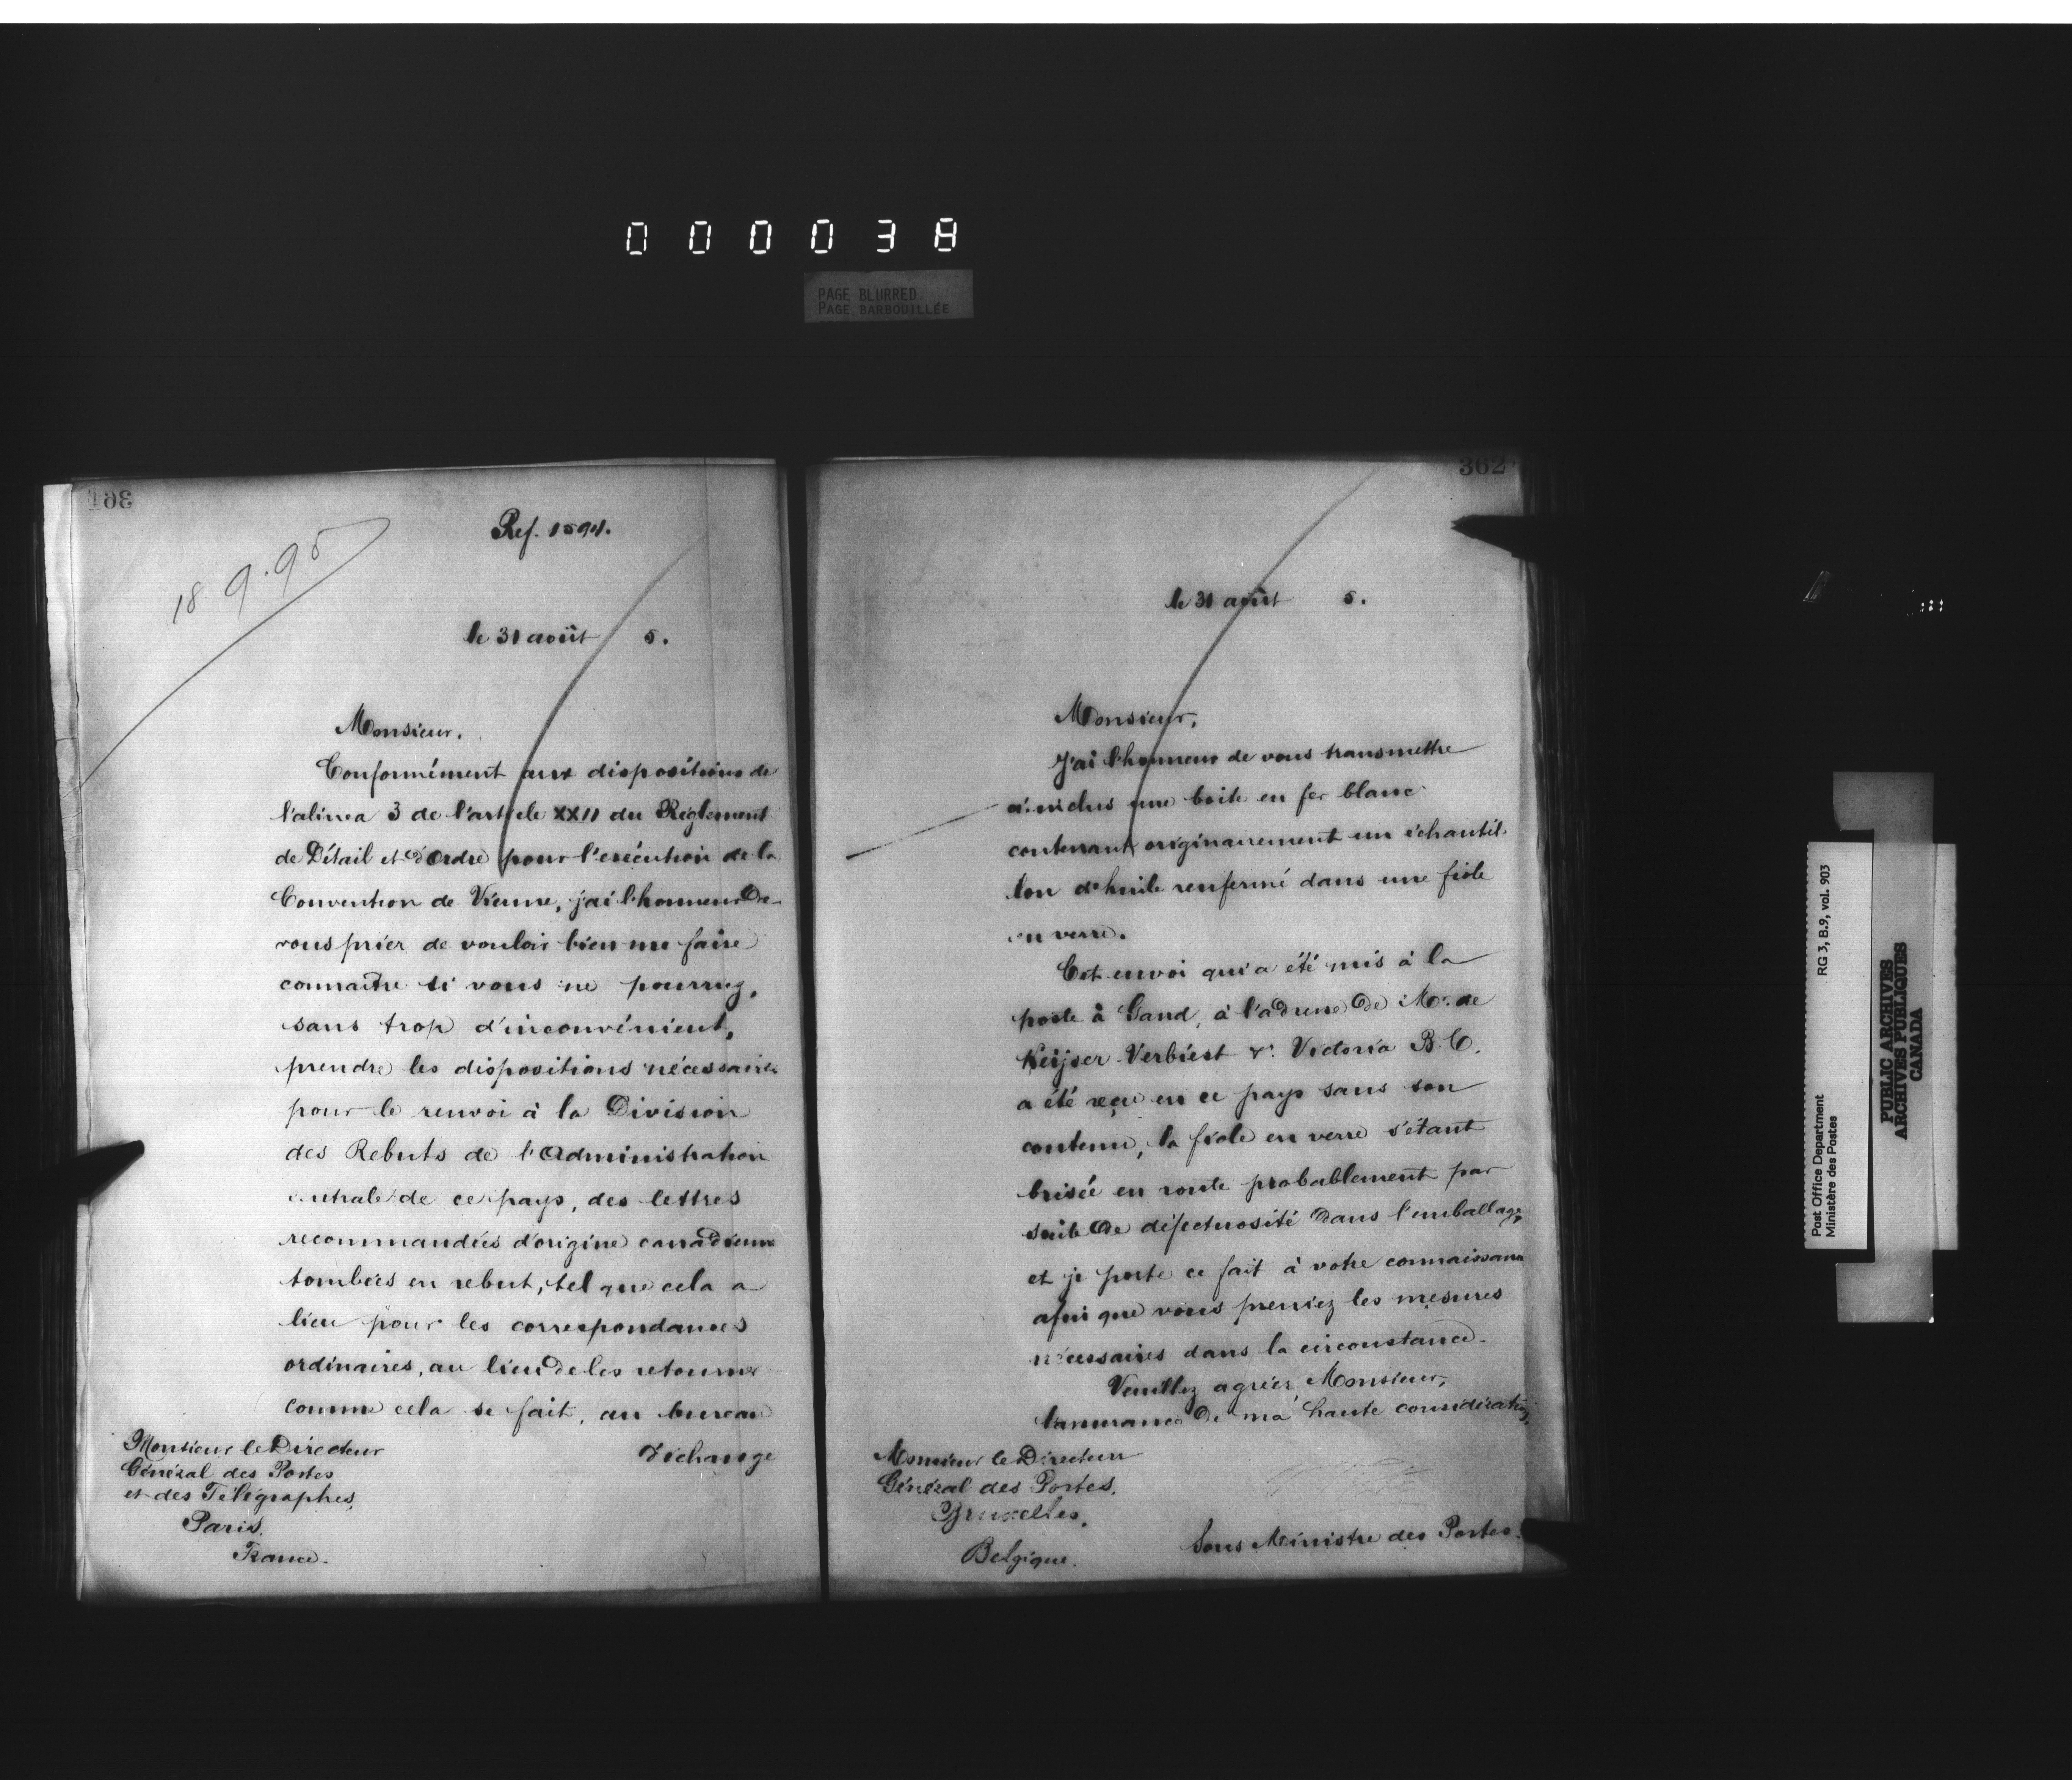 000038
PAGE BLURRED
PAGE BARBOUILLÉE
361
Ref. 1594.
18 9.95
le 31 août 5.
Monsieur.
Conformément aux dispositions de
l'alinea 3 de l'article XXII du Règlement
de Détail et d'Ordre pour l'exécution de la
Convention de Vienne, j'ai l'honneur de
vous prier de vouloir bien me faire
connaître si vous ne pourriez,
sans trop d'inconvénient,
prendre les dispositions nécessaires
pour le renvoi à la Division
des Rebuts de l'Administration
centrale de ce pays, des lettres
recommandées d'origine canadienne
tombées en rebut, tel que cela a
lieu pour les correspondances
ordinaires, au lieu de les retourner
comme cela se fait, au bureau
d'échange
Monsieur le Directeur
Général des Postes
et des Télégraphes,
Paris.
France.
362
le 31 août 5.
Monsieur,
J'ai l'honneur de vous transmettre
ci-inclus une boite en fer blanc
contenant originairement un échantil-
lon d'huile renfermé dans une fiole
en verre.
Cet envoi qui a été mis à la
poste à Gand, à l'adresse de Mr. de
Keijser-Verbiest Victoria B.C.
a été reçu en ce pays sans son
contenu, la fiole en verre s'étant
brisée en route probablement par
suite de défectuosité dans l'emballage,
et je porte ce fait à votre connaissance
afin que vous preniez les mesures
nécessaires dans la circonstance.
Veuillez agréer, Monsieur,
l'assurance de ma haute considération,
Monsieur le Directeur
Général des Postes.
Bruxelles.
Belgique.
Sous Ministre des Postes.
Post Office Department
Ministère des Postes
RG 3, B.9, vol. 903
PUBLIC ARCHIVES
ARCHIVES PUBLIQUES
CANADA